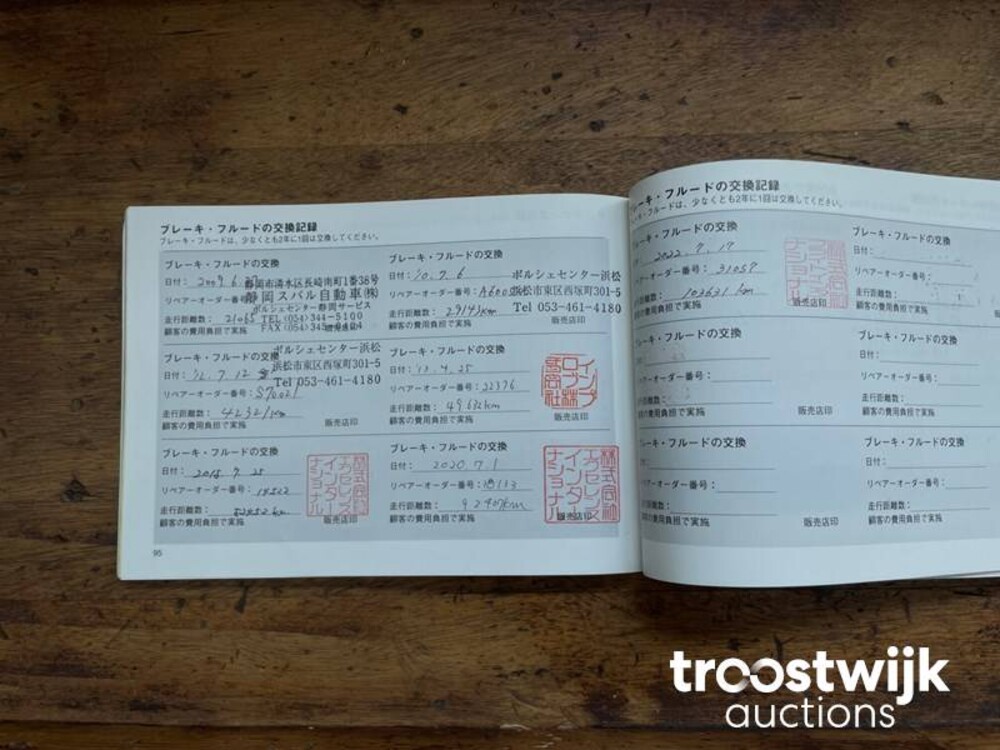 ブレーキ・フルードの交換記録
ブレーキ・フルードは、少なくとも2年に1回は交換してください。
ブレーキ・フルードの交換
日付:
静岡市清水区長崎南町1番38号
リペアーオーダー番号:
静岡スバル自動車(株)
ポルシェセンター静岡サービス
走行距離数: 21065
TEL(054)344-5100
顧客の費用負担で実施
ブレーキ・フルードの交換
日付: '10.7.6
ポルシェセンター浜松
リペアーオーダー番号:
浜松市東区西塚町301-5
走行距離数: 29143km
Tel 053-461-4180
顧客の費用負担で実施
販売店印
ブレーキ・フルードの交換
ポルシェセンター浜松
日付: '12.7.12
浜松市東区西塚町301-5
リペアーオーダー番号:
Tel 053-461-4180
走行距離数: 42321km
顧客の費用負担で実施
販売店印
ブレーキ・フルードの交換
日付:
リペアーオーダー番号: 22376
走行距離数: 49632km
顧客の費用負担で実施
販売店印
ブレーキ・フルードの交換
日付: 2018.7.25
リペアーオーダー番号:
走行距離数:
顧客の費用負担で実施
販売店印
株式会社
エクセレンス
インターナショナル
ブレーキ・フルードの交換
日付: 2020.7.1
リペアーオーダー番号:
走行距離数:
顧客の費用負担で実施
販売店印
株式会社
エクセレンス
インターナショナル
95
ブレーキ・フルードの交換記録
ブレーキ・フルードは、少なくとも2年に1回は交換してください。
ブレーキ・フルードの交換
2022.7.17
リペアーオーダー番号: 31057
走行距離数: 103631km
顧客の費用負担で実施
販売店印
ブレーキ・フルードの交換
日付:
リペアーオーダー番号:
走行距離数:
顧客の費用負担で実施
ブレーキ・フルードの交換
日付:
リペアーオーダー番号:
走行距離数:
顧客の費用負担で実施
販売店印
ブレーキ・フルードの交換
日付:
リペアーオーダー番号:
走行距離数:
顧客の費用負担で実施
ブレーキ・フルードの交換
日付:
リペアーオーダー番号:
走行距離数:
顧客の費用負担で実施
販売店印
ブレーキ・フルードの交換
日付:
リペアーオーダー番号:
走行距離数:
顧客の費用負担で実施
troostwijk
auctions